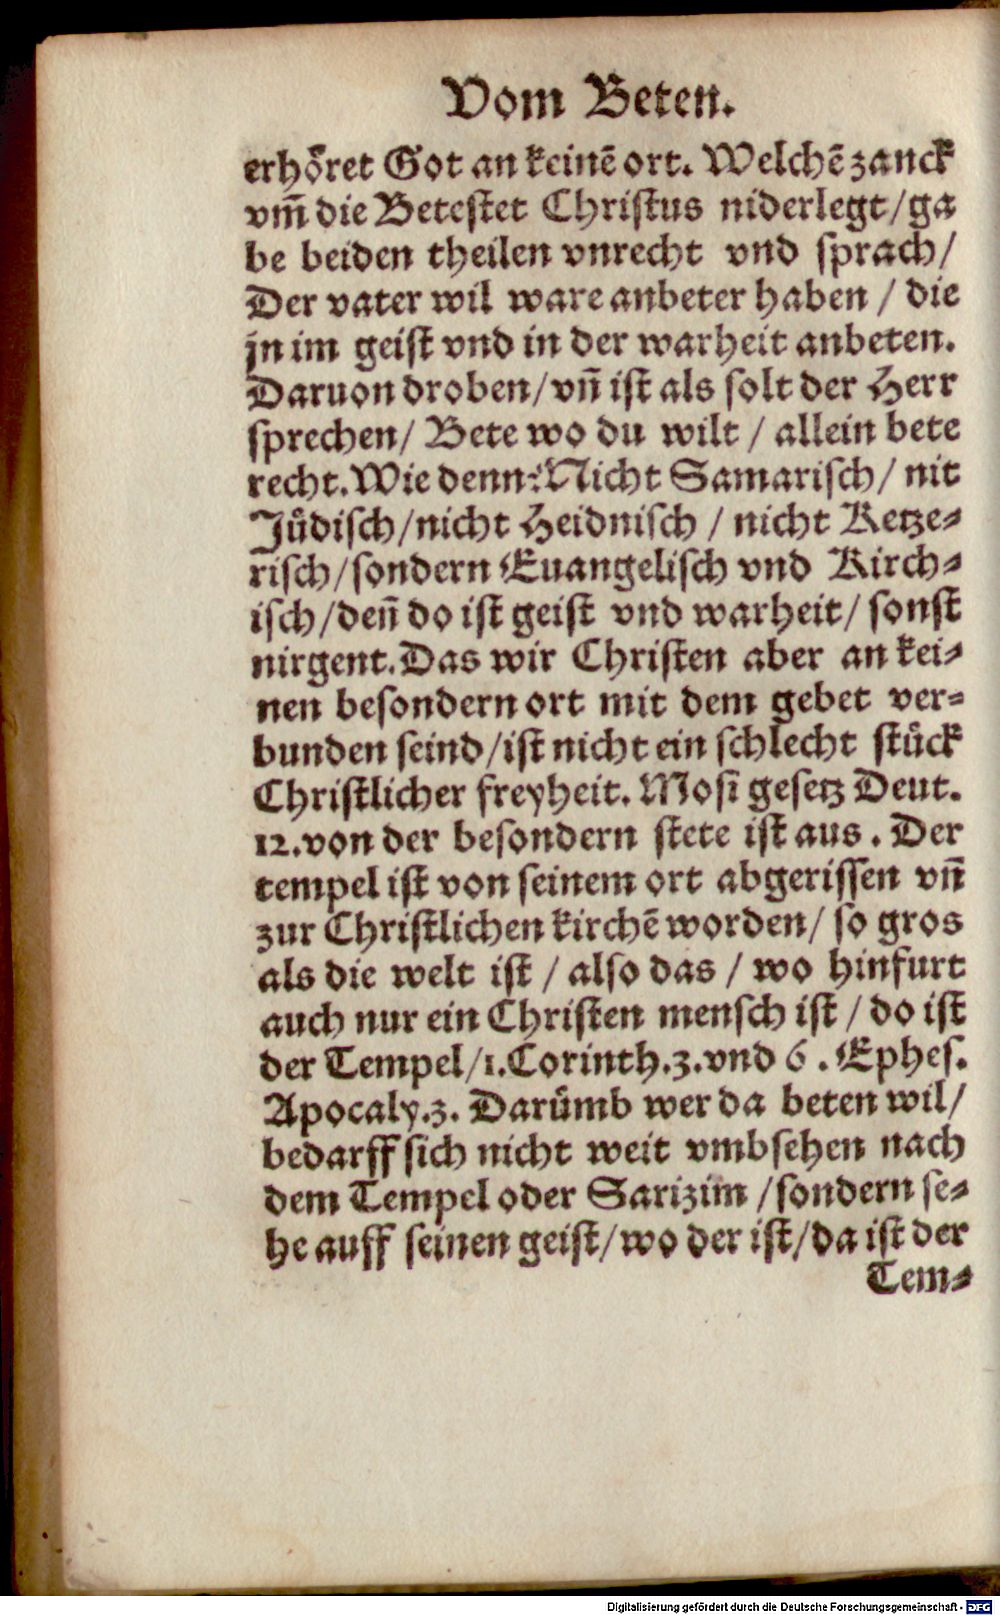 Vom Beten.
erhöret Got an keinē ort. Welchē zanck
vm̄ die Betestet Christus niderlegt/ga
be beiden theilen vnrecht vnd sprach/
Der vater wil ware anbeter haben / die
jn im geist vnd in der warheit anbeten.
Daruon droben/vn̄ ist als solt der Herr
sprechen/ Bete wo du wilt / allein bete
recht. Wie denn: Nicht Samarisch/ nit
Jüdisch/nicht Heidnisch / nicht Ketze-
risch/sondern Euangelisch vnd Kirch-
isch/den̄ do ist geist vnd warheit/ sonst
nirgent. Das wir Christen aber an kei-
nen besondern ort mit dem gebet ver-
bunden seind/ist nicht ein schlecht stück
Christlicher freyheit. Mosi gesetz Deut.
12. von der besondern stete ist aus. Der
tempel ist von seinem ort abgerissen vn̄
zur Christlichen kirchē worden/ so gros
als die welt ist / also das / wo hinfurt
auch nur ein Christen mensch ist / do ist
der Tempel/1. Corinth.3. vnd 6. Ephes.
Apocaly.3. Darümb wer da beten wil/
bedarff sich nicht weit vmbsehen nach
dem Tempel oder Sarizim /sondern se-
he auff seinen geist/wo der ist/da ist der
Tem-
Digitalisierung gefördert durch die Deutsche Forschungsgemeinschaft - DFG